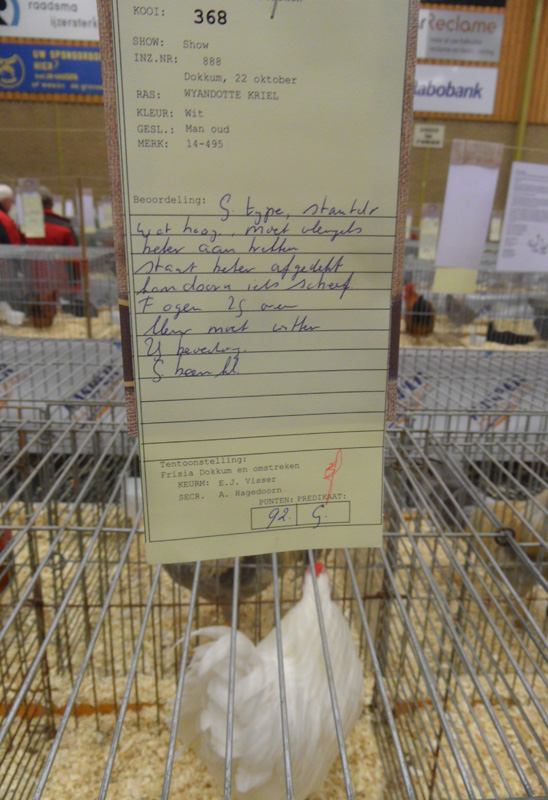 raadsma
ijzersterk
UW SPONSORBORD
HIER?
Reclame
Rabobank
KOOI: 368
SHOW: Show
INZ.NR: 888
Dokkum, 22 oktober
RAS: WYANDOTTE KRIEL
KLEUR: Wit
GESL.: Man oud
MERK: 14-495
Beoordeling: G type, stand
wat hoog, moet vleugels
beter aan trekken
staart beter afgedekt
kamdoorn iets scheef
F ogen ZG oren
kleur moet witter
ZG bevedering
G been kl.
Tentoonstelling:
Frisia Dokkum en omstreken
KEURM: E.J. Visser
SECR. A. Hagedoorn
PUNTEN: PREDIKAAT:
92. G.